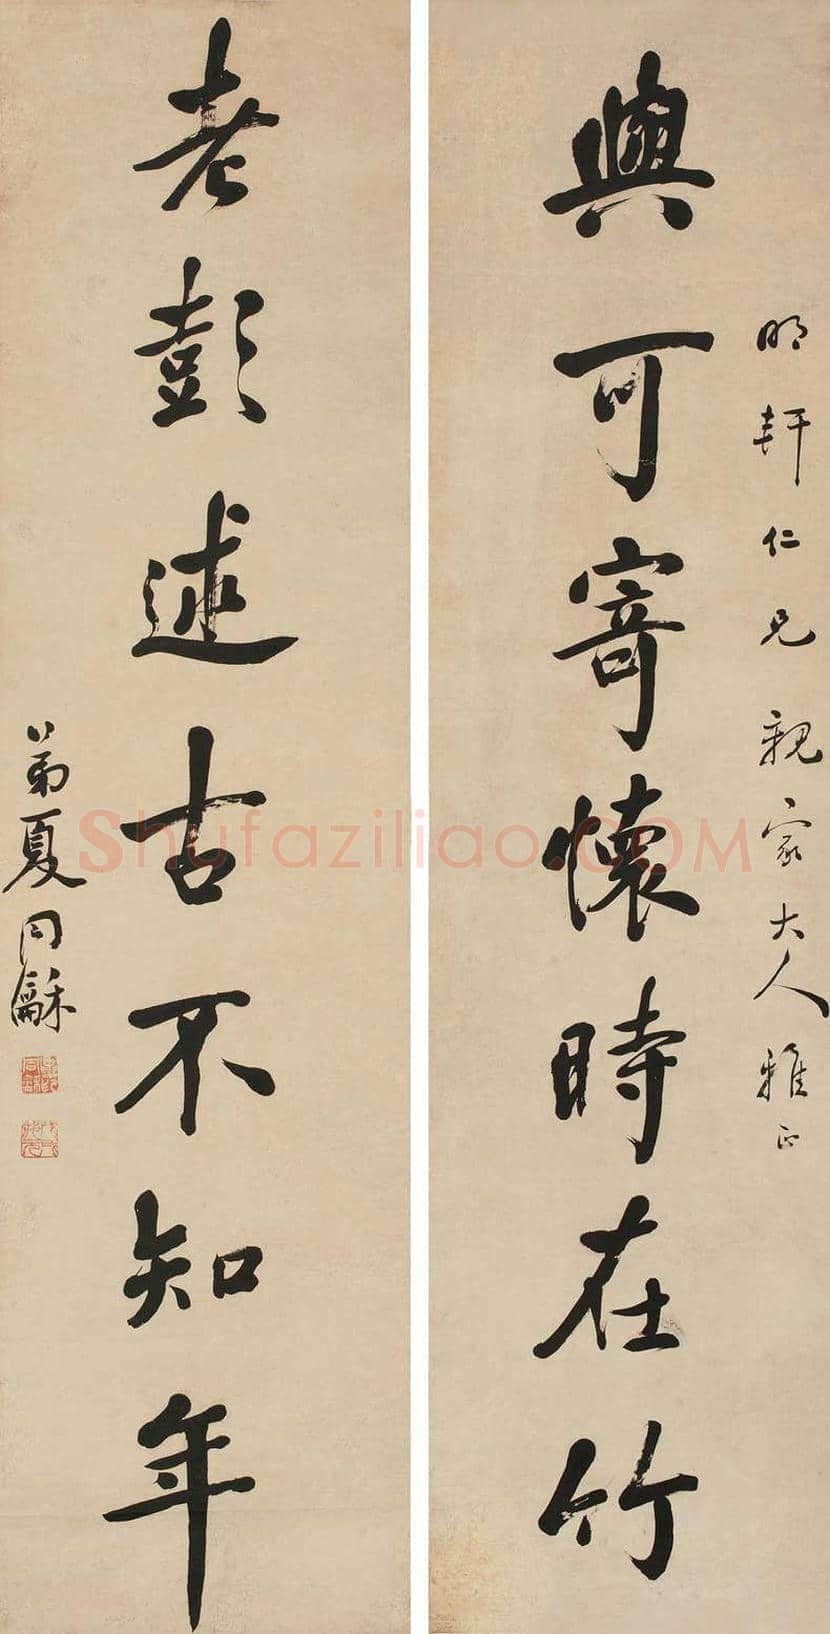 與可寄懷時在竹
明軒仁兄親家大人雅正
老彭述古不知年
弟夏同龢
Shufaziliao.COM